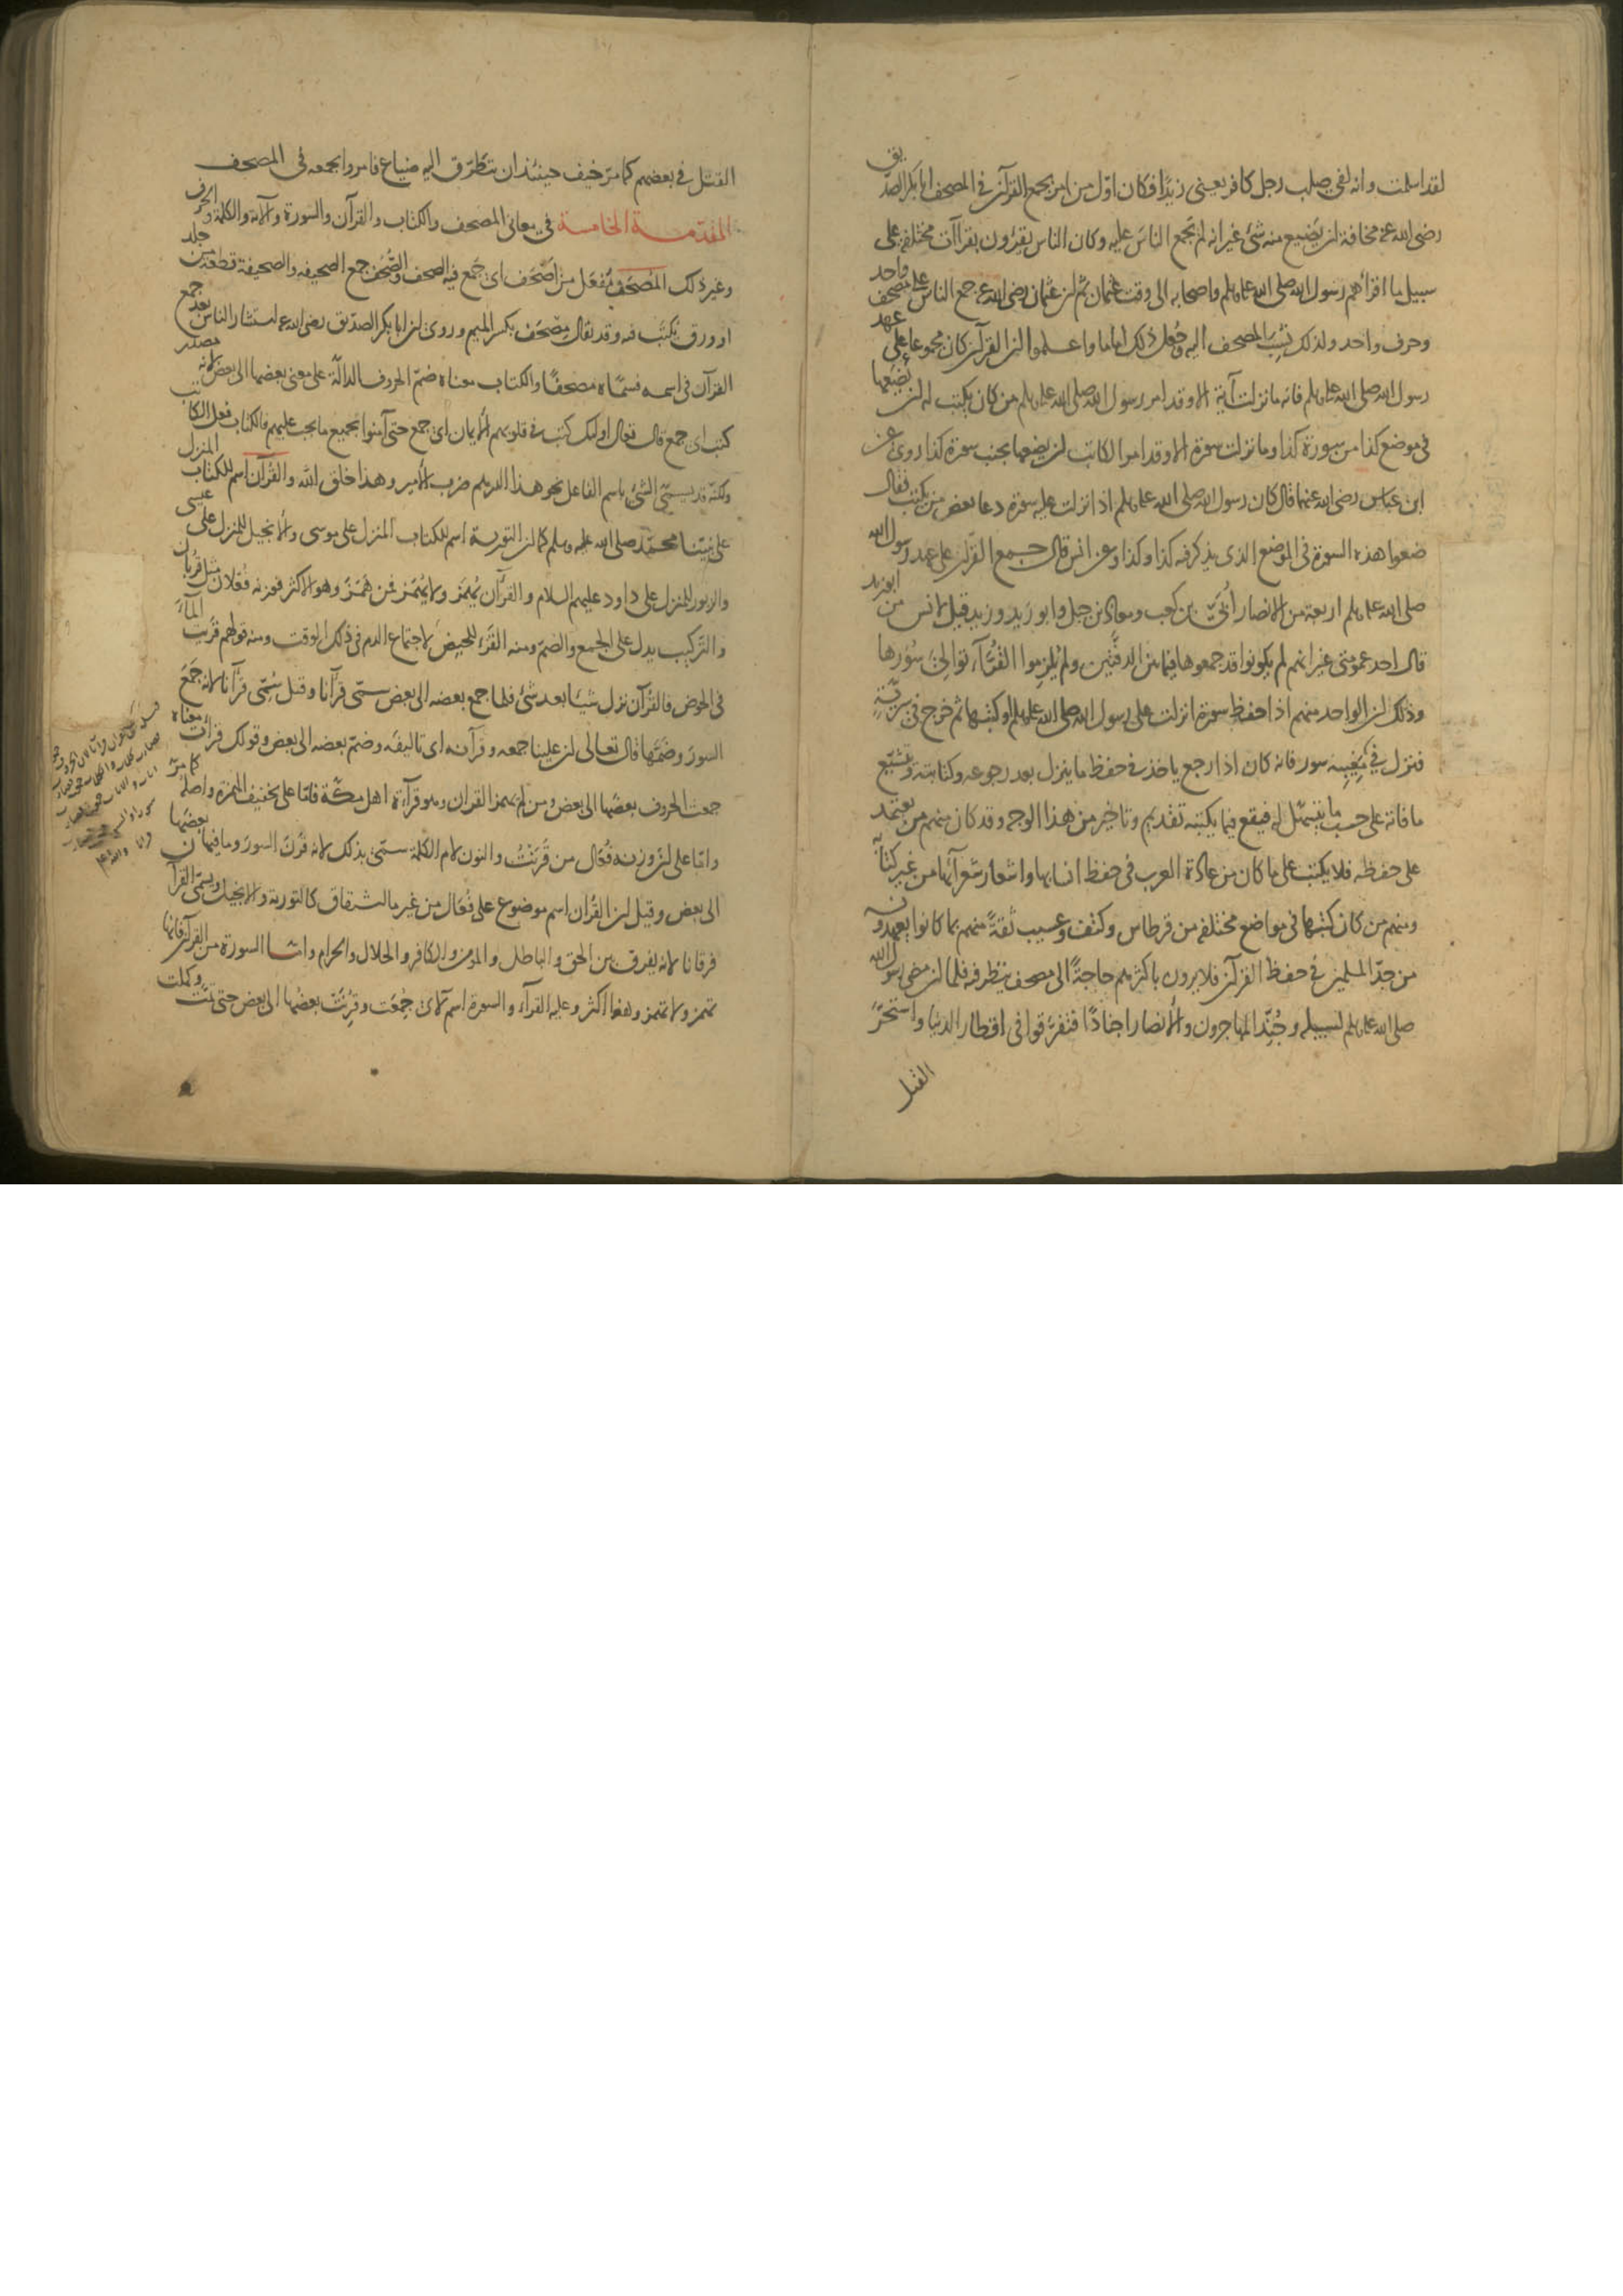 لقد اسلمت وانه لفي صلب رجل كافر يعني زيدا فكان اول من امر بجمع القرآن في المصحف ابا بكر الصديق
رضى الله عنه مخافة ان يضيع منه شئ غير انه لم يجمع الناس عليه وكان الناس يقرؤن بقراآت مختلفة على
سبيل ما اقرأهم رسول الله صلى الله عليه وسلم واصحابه الى وقت عثمان ثم ان عثمان رضى الله عنه جمع الناس على مصحف واحد
وحرف واحد ولذلك نسب المصحف اليه وجعل ذلك اماما واعلموا ان القرآن كان مجموعا على عهد
رسول الله صلى الله عليه وسلم فانه ما نزلت آية الا وقد امر رسول الله صلى الله عليه وسلم من كان يكتب له ان يضعها
في موضع كذا من سورة كذا وما نزلت سورة الا وقد امر الكاتب ان يضعها بجنب سورة كذا روى عن
ابن عباس رضى الله عنهما قال كان رسول الله صلى الله عليه وسلم اذا نزلت عليه سورة دعا بعض من يكتب فقال
ضعوا هذه السورة في الموضع الذى يذكر فيه كذا وكذا وعن انس قال جمع القرآن على عهد رسول الله
صلى الله عليه وسلم اربعة من الانصار أبىّ بن كعب ومعاذ بن جبل وابو زيد وزيد قيل لانس من ابو زيد
قال احد عمومتى غير انهم لم يكونوا قد جمعوها فيما بين الدفّتين ولم يلزموا القرّاء توالى سُوَرها
وذلك ان الواحد منهم اذا حفظ سورة انزلت على رسول الله صلى الله عليه وسلم او كتبها ثم خرج في سريّة
فنزل في مغيبه سور فانه كان اذا رجع ياخذ في حفظ ما ينزل بعد رجوعه وكتابته ويتتبّع
ما فاته على حسب ما يتسهّل له فيقع فيما يكتبه تقديم وتاخير من هذا الوجه وقد كان منهم من يعتمد
على حفظه فلا يكتب على ما كان من عادة العرب في حفظ انسابها واشعار شعرآئها من غير كتابة
ومنهم من كان كتبها في مواضع مختلفة من قرطاس وكتف وعسيب ثقةً منهم بما كانوا يعهدونه
من جدّ المسلمين في حفظ القرآن فلا يرون باكثرهم حاجةً الى مصحف ينظر فيه فلما ان مضى رسول الله
صلى الله عليه وسلم لسبيله وجُنّد المهاجرون والانصار اجنادًا فتفرّقوا في اقطار الدنيا واستحرّ
القتل
القتل في بعضهم كما مرّ خيف حينئذ ان يتطرّق اليه ضياع فامروا بجمعه في المصحف
المقدّمة الخامسة في معانى المصحف والكتاب والقرآن والسورة والآية والكلمة والحرف
وغير ذلك المُصحَف مُفعَل من اُصحَف اى جُمع فيه الصحف والصُّحُف جمع الصحيفة والصحيفة قطعة من جلد
او ورق يكتب فيه وقد يقال مِصحَف بكسر الميم وروى ان ابا بكر الصدّيق رضى الله عنه استشار الناس بعد جمع
القرآن في اسمه فسمّاه مصحفًا والكتاب معناه ضمّ الحروف الدالّة على معنى بعضها الى بعض لانه مصدر
كتب اى جمع قال تعالى اولئك كتب في قلوبهم الايمان اى جمع حتى آمنوا بجميع ما يجب عليهم فالكتاب فعل الكاتب
ولكنّه قد يسمّى الشئ باسم الفاعل نحو هذا الدرهم ضرب الامير وهذا خلق الله والقرآن اسم للكتاب المنزل
على نبيّنا محمّد صلى الله عليه وسلم كما ان التورية اسم للكتاب المنزل على موسى والانجيل للمنزل على عيسى
والزبور للمنزل على داود عليهم السلام والقرآن يُهمَز ولا يُهمَز فمن هَمَزَ وهو الاكثر فوزنه فُعلان مثل قُربان
والتركيب يدل على الجمع والضمّ ومنه القُرء للحيض لاجتماع الدم في ذلك الوقت ومنه قولهم قريت المآء
في الحوض فالقرآن نزل شيئا بعد شئ فلما جمع بعضه الى بعض سمّى قرآنا وقيل سُمّى قرآنا لانه جَمَعَ
السورَ وضَمَّها قال تعالى ان علينا جمعه وقرآنه اى تاليفه وضمّ بعضه الى بعض وقولك قرأتُ معناه
جمعت الحروف بعضها الى بعض ومن لم يهمز القران وهو قرآءة اهل مكّة فامّا على تخفيف الهمزة واصله كما مرّ
وامّا على انّ وزنه فُعال من قَرَنتُ والنون لام الكلمة سمّى بذلك لانه قَرَنَ السورَ وما فيها بعضها
الى بعض وقيل ان القُران اسم موضوع على فُعال من غير مااشتقاق كالتورية والانجيل ويسمّى القرآن
فرقانا لانه يفرق بين الحق والباطل والمؤمن والكافر والحلال والحرام وامّا السورة من القرآن فانها
تهمز ولا تهمز وهذا اكثر وعليه القرآء والسورة اسم لآى جُمِعَت وقُرِنَت بعضُها الى بعض حتى تمّت وكملت